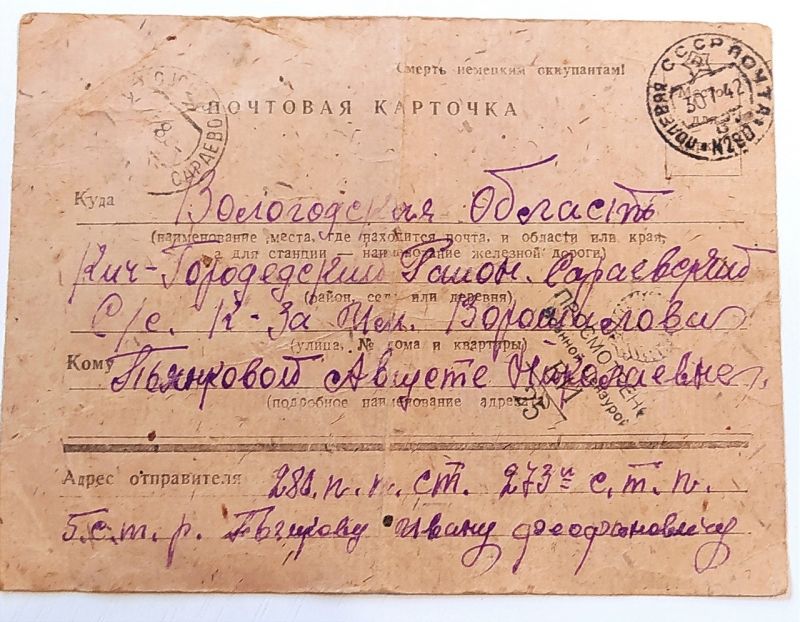 Смерть немецким оккупантам!
ПОЧТОВАЯ КАРТОЧКА
СССР ПОЧТА
ПОЛЕВАЯ N280
30 7 42
САРАЕВО
Куда Вологодская Область
(наименование места, где находится почта, и области или края,
а для станции наименование железной дороги)
Кич-Городедский Район. Сараевский
(район, село или деревня)
С/с. К-За Им. Ворошилова
(улица, № дома и квартиры)
Кому Пьянковой Августе Николаевне
(подробное наименование адресата)
ПРОСМОТРЕНО
Военной Цензурой
25
Адрес отправителя 280. п. п. ст. 273й с. т. п.
5 с. т. р. Ивану Феофановичу